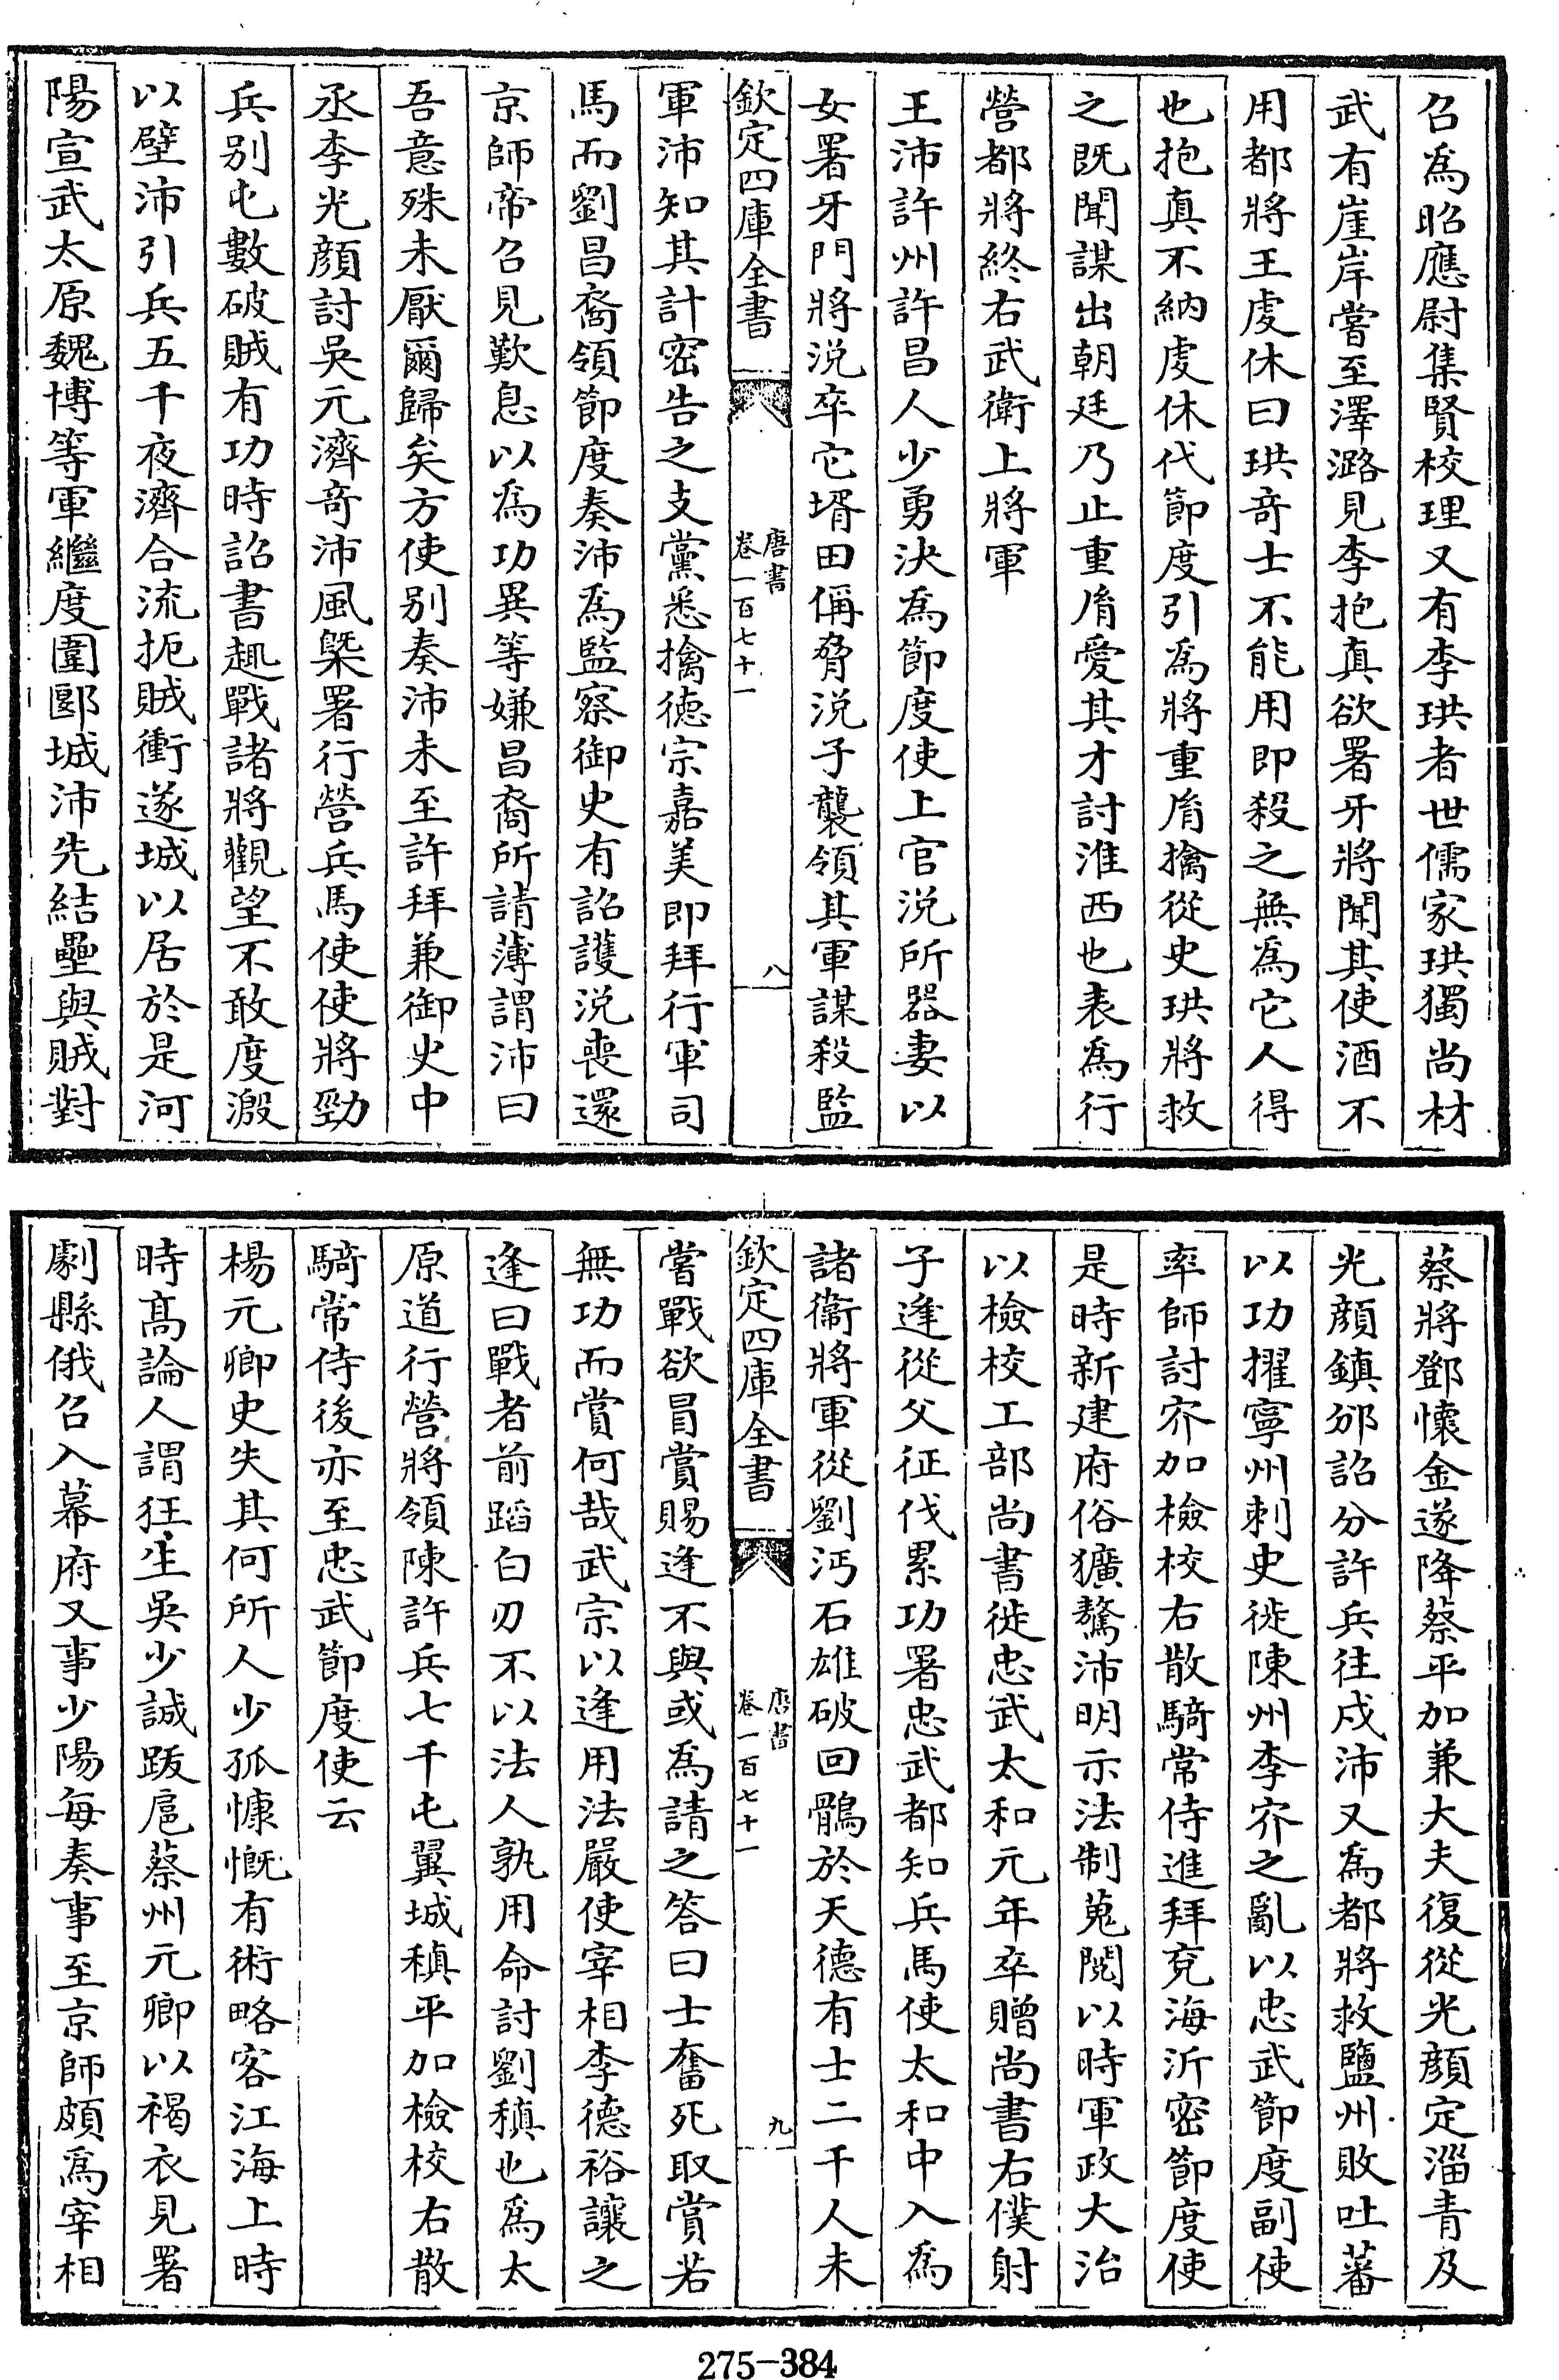 召爲昭應尉集賢校理又有李珙者世儒家珙獨尚材
武有崖岸嘗至澤潞見李抱真欲署牙將聞其使酒不
用都將王虔休曰珙奇士不能用即殺之無爲它人得
也抱真不納虔休代節度引爲將重胤擒從史珙將救
之既聞謀出朝廷乃止重胤愛其才討淮西也表爲行
營都將終右武衛上將軍
王沛許州許昌人少勇決爲節度使上官涚所器妻以
女署牙門將涚卒它壻田偁脅涚子襲領其軍謀殺監
欽定四庫全書
唐書
卷一百七十一
八
軍沛知其計密告之支黨悉擒德宗嘉美即拜行軍司
馬而劉昌裔領節度奏沛爲監察御史有詔護涚喪還
京師帝召見歎息以爲功異等嫌昌裔所請薄謂沛曰
吾意殊未厭爾歸矣方使别奏沛未至許拜兼御史中
丞李光顔討吳元濟奇沛風槩署行營兵馬使使將勁
兵别屯數破賊有功時詔書趣戰諸將觀望不敢度溵
以壁沛引兵五千夜濟合流扼賊衝遂城以居於是河
陽宣武太原魏博等軍繼度圍郾城沛先結壘與賊對
蔡將鄧懷金遂降蔡平加兼大夫復從光顔定淄青及
光顔鎮邠詔分許兵往戍沛又爲都將救鹽州敗吐蕃
以功擢寧州刺史徙陳州李㝏之亂以忠武節度副使
率師討㝏加檢校右散騎常侍進拜兗海沂密節度使
是時新建府俗獷驁沛明示法制蒐閱以時軍政大治
以檢校工部尚書徙忠武太和元年卒贈尚書右僕射
子逢從父征伐累功署忠武都知兵馬使太和中入爲
諸衞將軍從劉沔石雄破回鶻於天德有士二千人未
欽定四庫全書
唐書
卷一百七十一
九
嘗戰欲冒賞賜逢不與或爲請之答曰士奮死取賞若
無功而賞何哉武宗以逢用法嚴使宰相李德裕讓之
逢曰戰者前蹈白刃不以法人孰用命討劉稹也爲太
原道行營將領陳許兵七千屯翼城稹平加檢校右散
騎常侍後亦至忠武節度使云
楊元卿史失其何所人少孤慷慨有術略客江海上時
時髙論人謂狂生吳少誠跋扈蔡州元卿以褐衣見署
劇縣俄召入幕府又事少陽每奏事至京師頗爲宰相
275-384